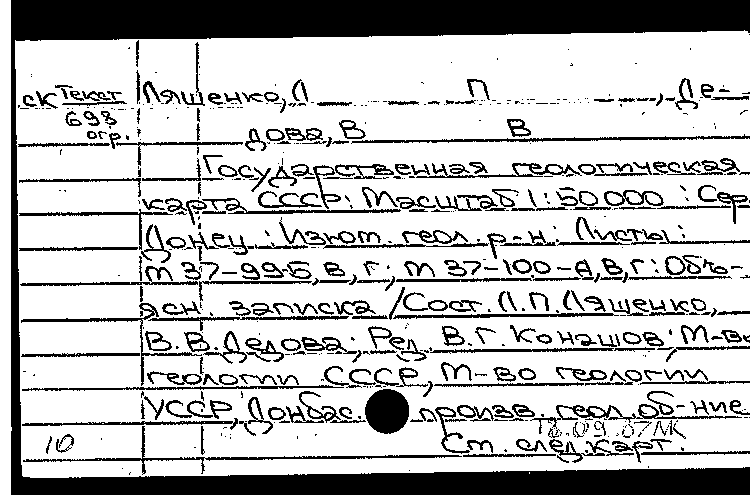 ск Текст Лященко, Л П , Де-
698
огр. дова, В В
Государственная геологическая
карта СССР: Масштаб 1:50000 : Сер.
Донец. : Изюм. геол. р-н: Листы:
М 37-99-Б, В, Г; М 37-100-А, В, Г : Объ-
ясн. записка / Сост. Л.П. Лященко,
В.В. Дедова; Ред. В.Г. Конашов; М-во
геологии СССР, М-во геологии
УССР, Донбас. произв. геол. об-ние
18.09.87
10 См. след. карт.